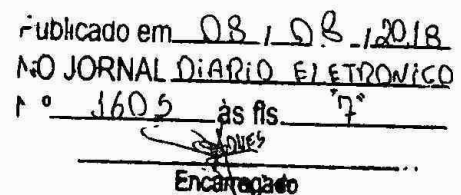 Publicado em 08 / 08 / 2018
NO JORNAL DiARiO ElETRONiCO
Nº 1605 às fls. "7"
Encarregado